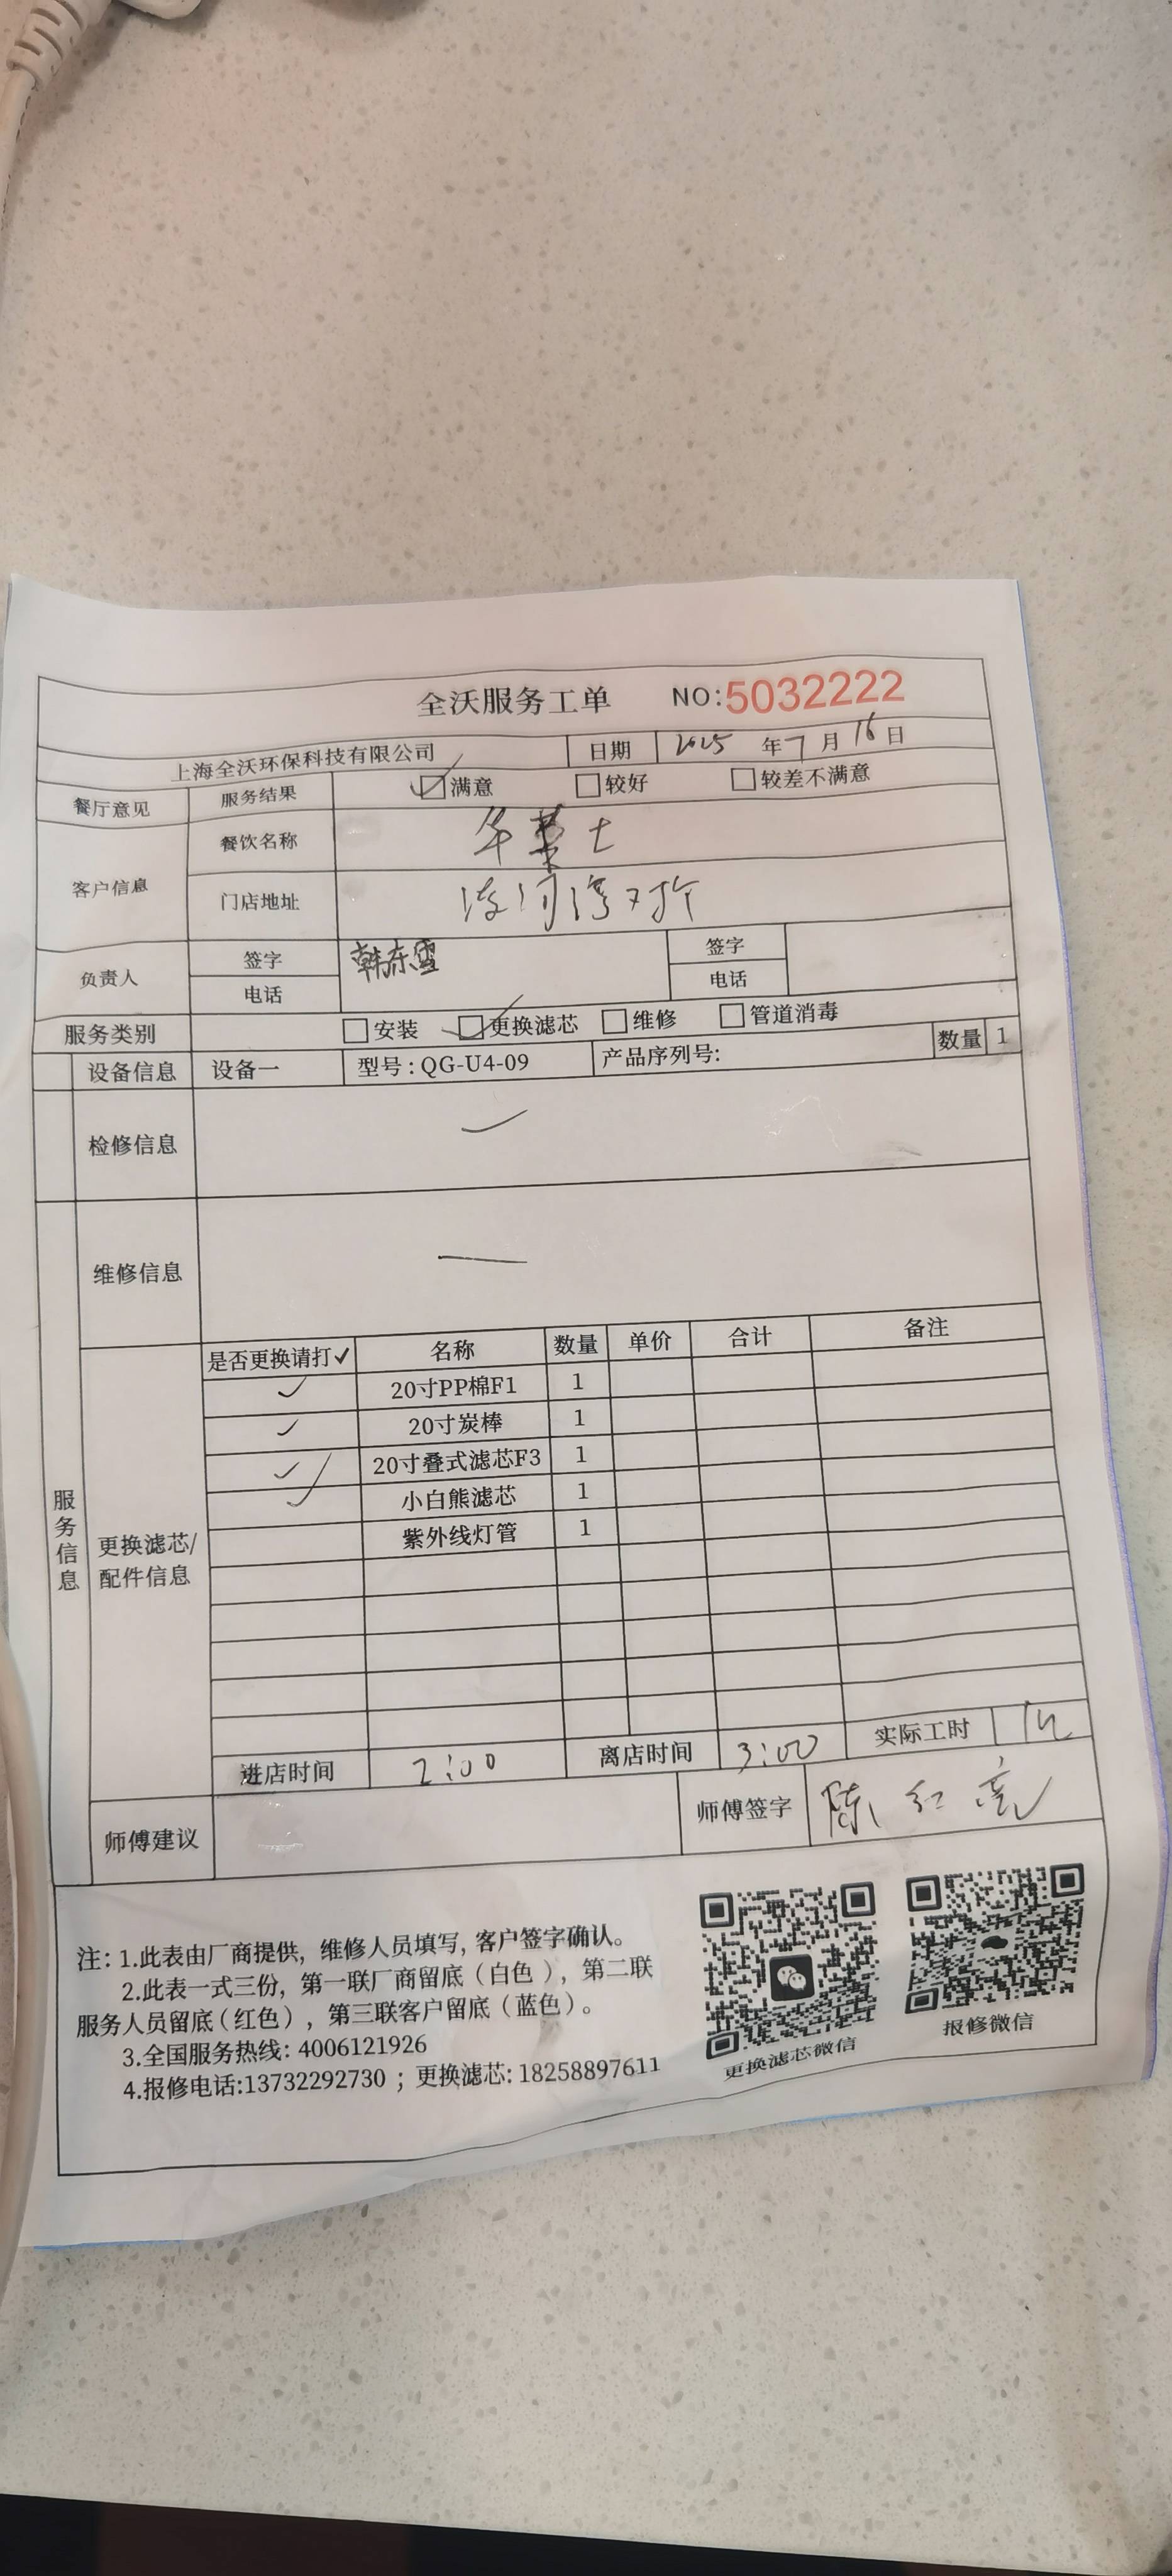 全沃服务工单 NO:5032222
上海全沃环保科技有限公司 日期 2025 年 7 月 16 日
餐厅意见 服务结果 满意 较好 较差不满意
客户信息 餐饮名称 华莱士
门店地址
负责人 签字 韩东雪 签字
电话 电话
服务类别 安装 更换滤芯 维修 管道消毒
设备信息 设备一 型号:QG-U4-09 产品序列号: 数量 1
检修信息
维修信息
服务信息
更换滤芯/
配件信息
是否更换请打✓ 名称 数量 单价 合计 备注
✓ 20寸PP棉F1 1
✓ 20寸炭棒 1
✓ 20寸叠式滤芯F3 1
✓ 小白熊滤芯 1
紫外线灯管 1
进店时间 2:00 离店时间 3:00 实际工时
师傅建议 师傅签字 陈红亮
注: 1.此表由厂商提供, 维修人员填写, 客户签字确认。
2.此表一式三份, 第一联厂商留底(白色), 第二联
服务人员留底(红色), 第三联客户留底(蓝色)。
3.全国服务热线: 4006121926
4.报修电话:13732292730 ; 更换滤芯: 18258897611
更换滤芯微信
报修微信